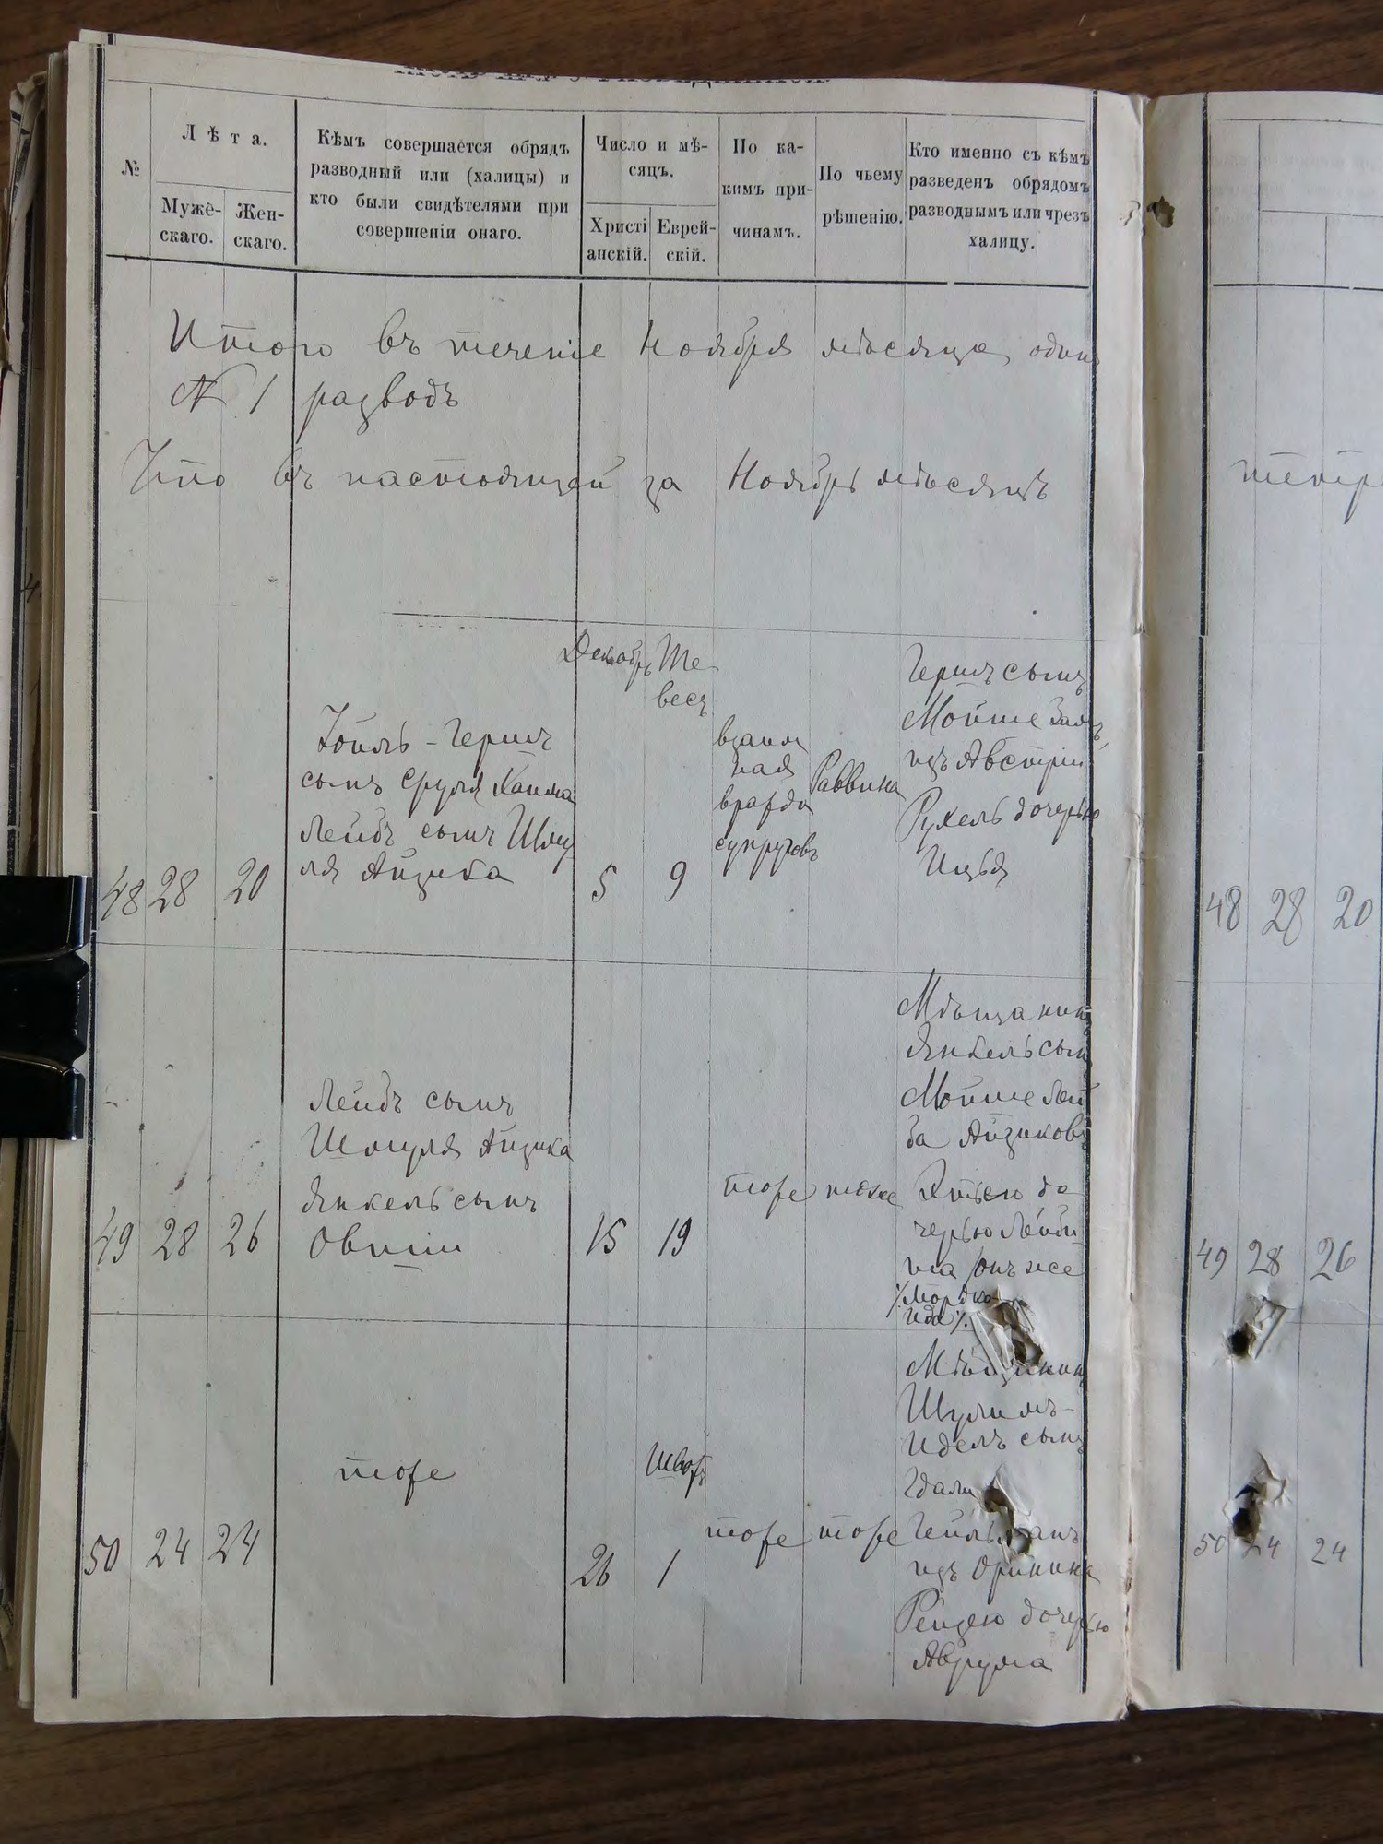 №
Лѣта.
Муже-
скаго.
Жен-
скаго.
Кѣмъ совершается обрядъ
разводный или (халицы) и
кто были свидѣтелями при
совершеніи онаго.
Число и мѣ-
сяцъ.
Христі
анскій.
Еврей-
скій.
По ка-
кимъ при-
чинамъ.
По чьему
рѣшенію.
Кто именно съ кѣмъ
разведенъ обрядомъ
разводнымъ или чрезъ
халицу.
Итого въ теченіе Ноября мѣсяца, одинъ
№ 1 разводъ
Что въ настоящей за Ноябрь мѣсяцъ
Декабрь
Те-
весъ
48 28 20
Іойль-Гершъ
сынъ Сруля Хаима
Лейбъ сынъ Шму
ля Айзика
5 9
взаим
ная
вражда
супруговъ
Раввина
Гершъ сынъ
Мойше
изъ Австріи
Рухель дочерью
Ицья
48 28 20
49 28 26
Лейбъ сынъ
Шмуля Айзика
Янкель сынъ
Овшіи
15 19
тоже тоже
Мѣщанинъ
Янкель сынъ
Мойше Лей
ба Айзиковъ
до
черью
онъ же
49 28 26
50 24 24
тоже
Шватъ
26 1
тоже тоже
Мѣщанинъ
Шулимъ-
Идель сынъ
изъ Оринина
Рейзею дочерью
Аврума
50 24 24